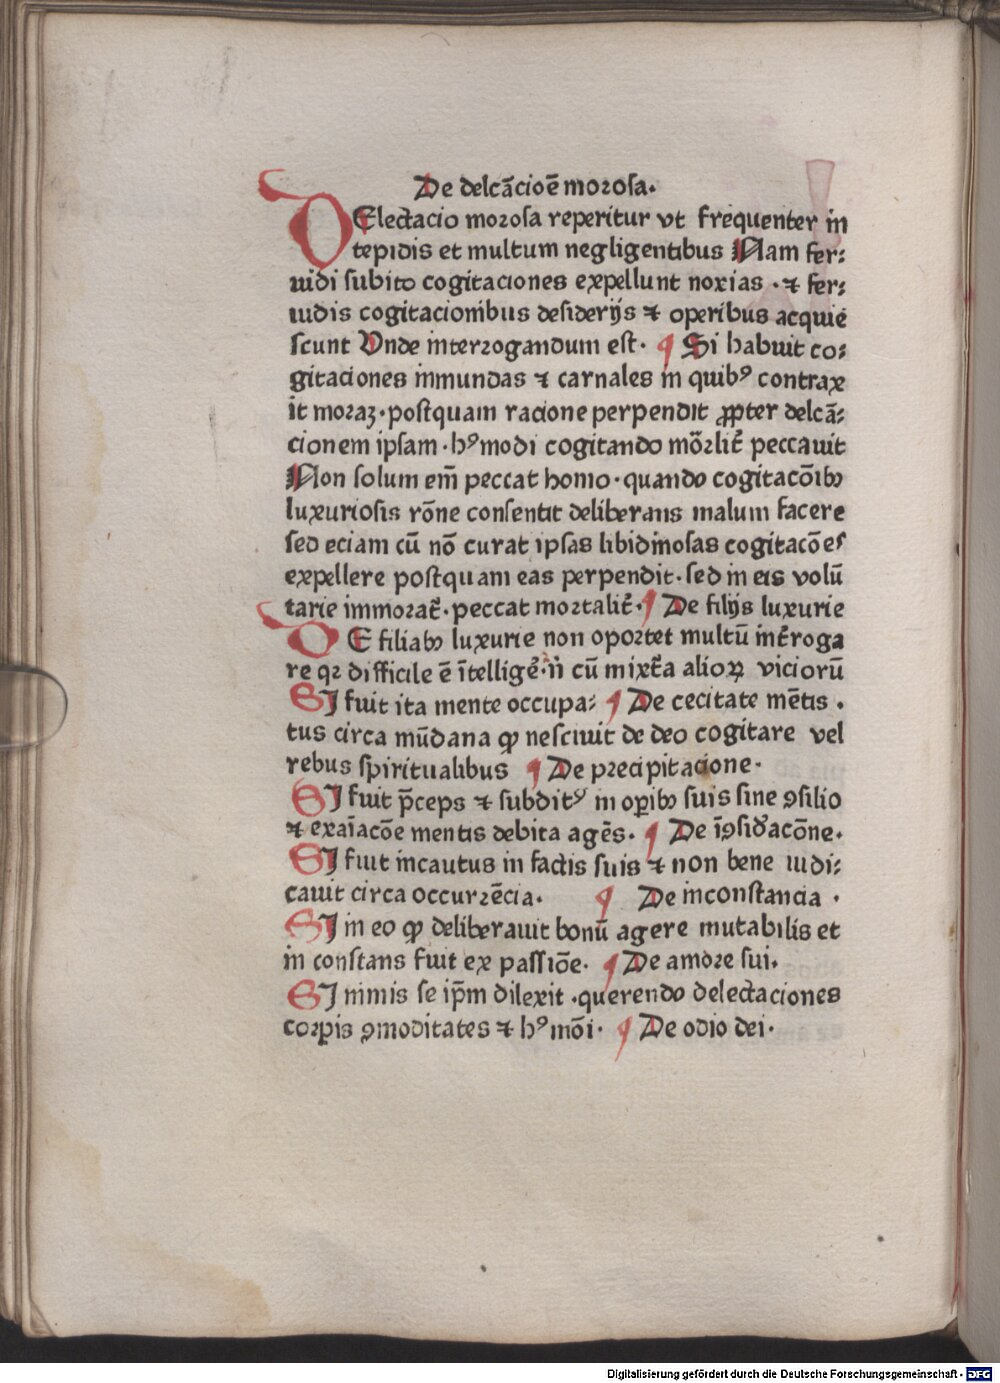 De delcācioē morosa.
DElectacio morosa reperitur vt frequenter in
tepidis et multum negligentibus Nam fer:
uidi subito cogitaciones expellunt noxias . ⁊ fer:
uidis cogitacionibus desiderijs ⁊ operibus acquie
scunt Vnde interrogandum est. ¶ Si habuit co:
gitaciones inmundas ⁊ carnales in quibꝰ contrax
it moraꝫ . postquam racione perpendit ꝓpter delcā:
cionem ipsam . hꝰmodi cogitando mōrlit̄ peccauit
Non solum em̄ peccat homo . quando cogitacōibꝰ
luxuriosis rōne consentit deliberans malum facere
sed eciam cū nō curat ipsas libidinosas cogitacōes
expellere postquam eas perpendit . sed in eis volū
tarie immorat̄ . peccat mortalit̄ . ¶ De filijs luxurie
DE filiabꝰ luxurie non oportet multū int̄roga
re qꝛ difficile ē ītelligē . ñ cū mixt̄a alioꝝ viciorū
SI fuit ita mente occupa: ¶ De cecitate mētis .
tus circa mūdana ꝙ nesciuit de deo cogitare vel
rebus spiritualibus ¶ De precipitacione .
SI fuit p̄ceps ⁊ subditꝰ in oꝑibꝰ suis sine ꝯsilio
⁊ exaīacōe mentis debita agēs . ¶ De īꝯsid̓acōne .
SI fuit incautus in factis suis ⁊ non bene iudi:
cauit circa occurrēcia . ¶ De inconstancia .
SI in eo ꝙ deliberauit bonū agere mutabilis et
in constans fuit ex passiōe . ¶ De amore sui .
SI nimis se ip̄m dilexit . querendo delectaciones
corꝑis ꝯmoditates ⁊ hꝰmōi . ¶ De odio dei .
Digitalisierung gefördert durch die Deutsche Forschungsgemeinschaft - DFG